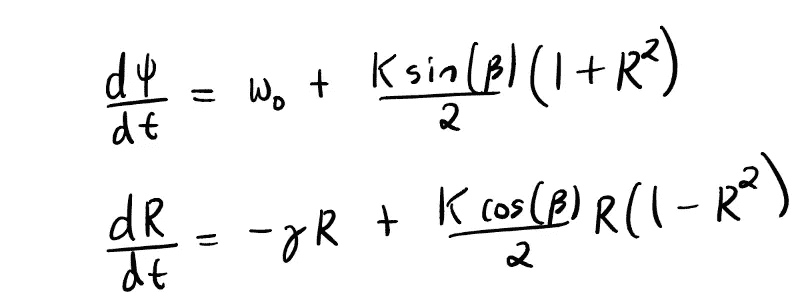 dψ/dt = ω₀ + K sin(β)/2 (1 + R²)
dR/dt = -γR + K cos(β)/2 R(1 - R²)